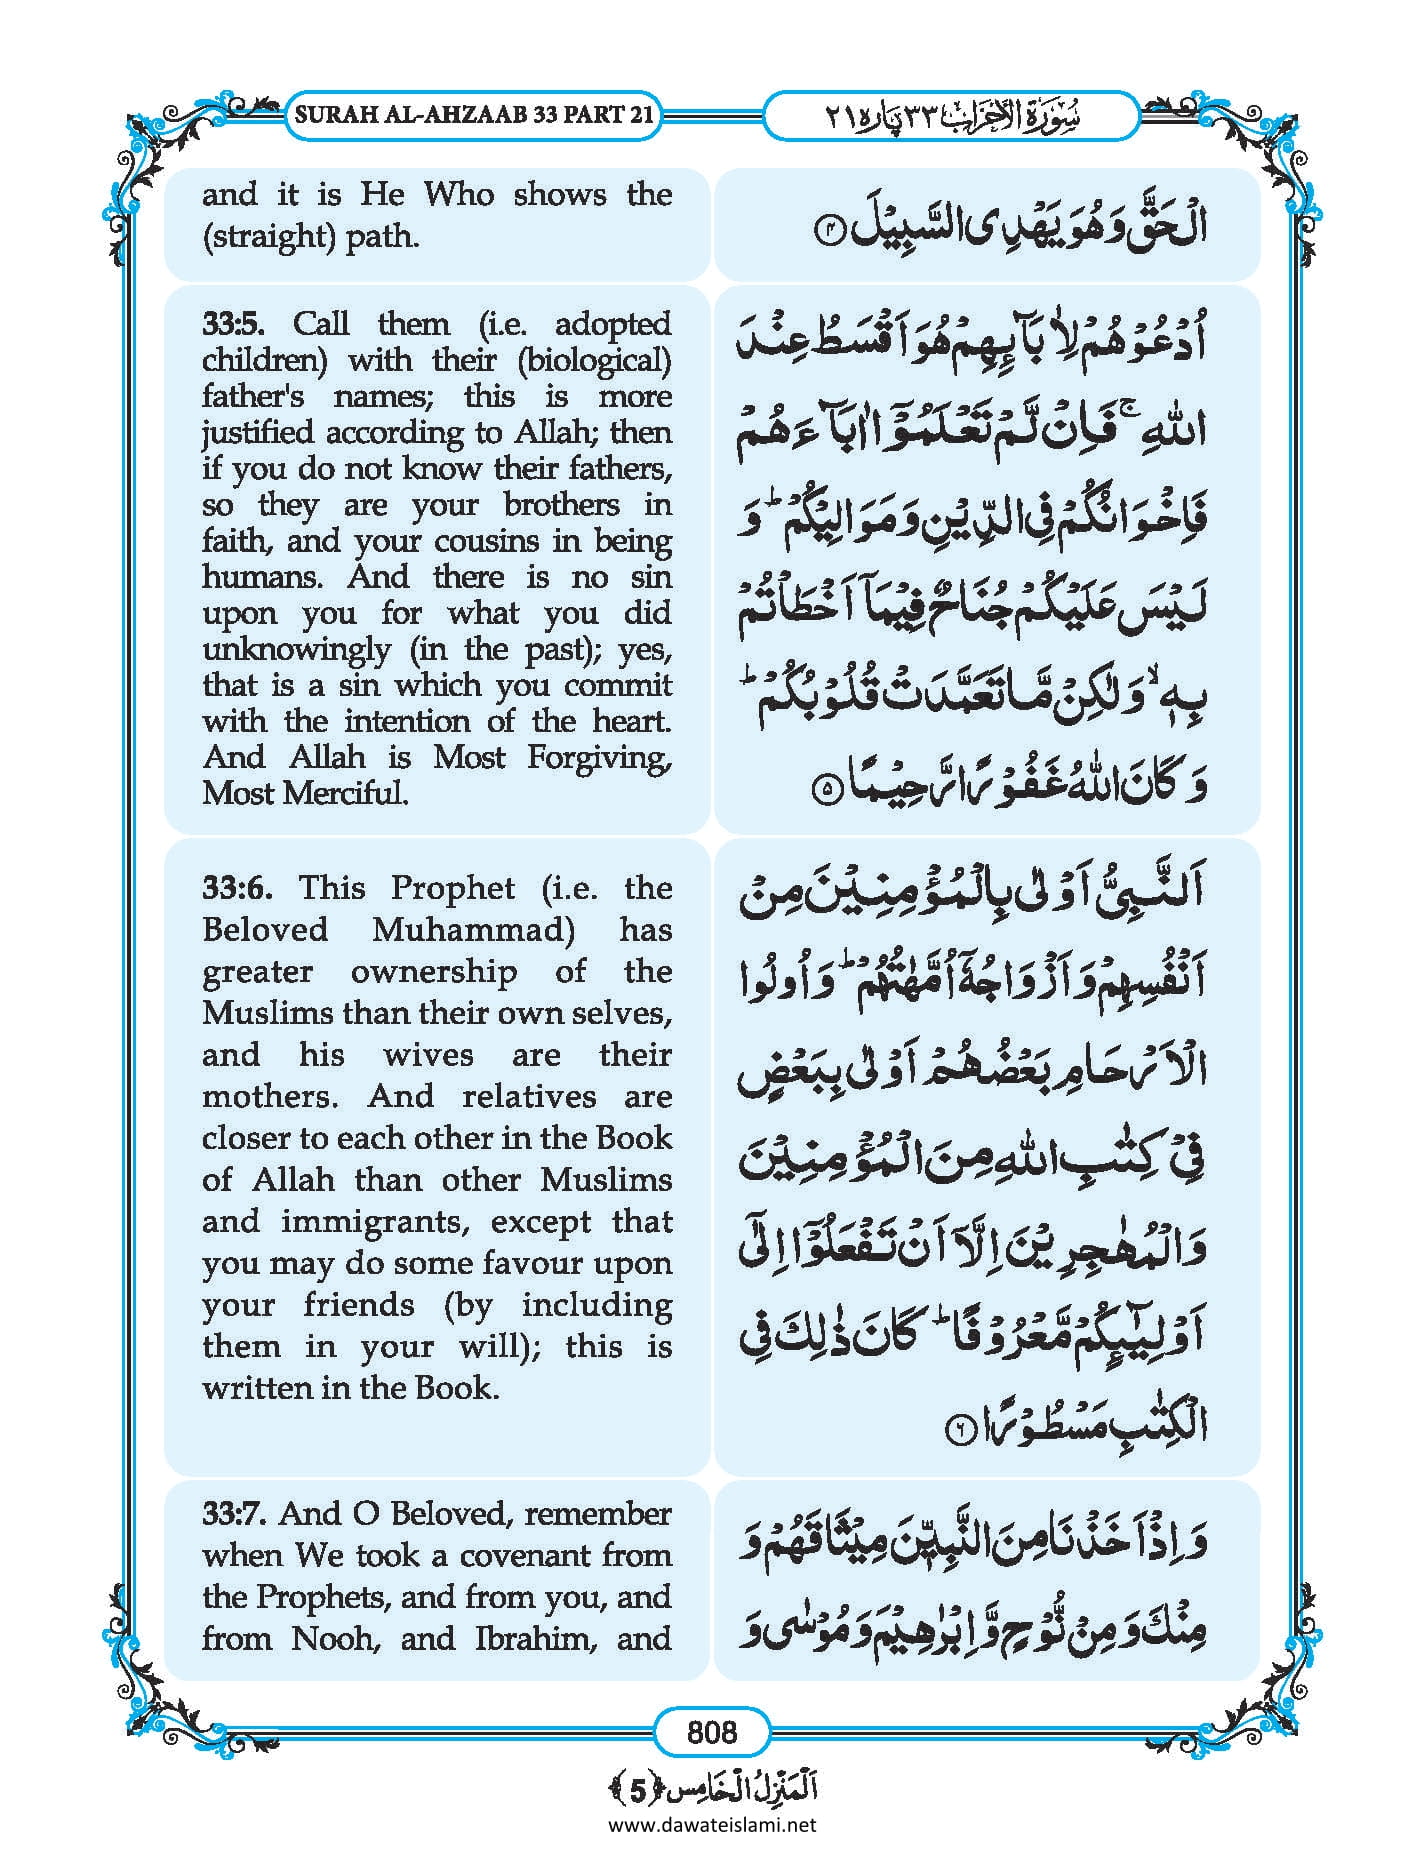 SURAH AL-AHZAAB 33 PART 21
سُوْرَةُ الْاَحْزَاب ٣٣ پاره ٢١
and it is He Who shows the
(straight) path.
الْحَقَّ وَ هُوَ یَهْدِی السَّبِیْلَ ﴿۴﴾
33:5. Call them (i.e. adopted
children) with their (biological)
father's names; this is more
justified according to Allah; then
if you do not know their fathers,
so they are your brothers in
faith, and your cousins in being
humans. And there is no sin
upon you for what you did
unknowingly (in the past); yes,
that is a sin which you commit
with the intention of the heart.
And Allah is Most Forgiving,
Most Merciful.
اُدْعُوْهُمْ لِاٰبَآىِٕهِمْ هُوَ اَقْسَطُ عِنْدَ
اللّٰهِ ۚ فَاِنْ لَّمْ تَعْلَمُوْۤا اٰبَآءَهُمْ
فَاِخْوَانُكُمْ فِی الدِّیْنِ وَ مَوَالِیْكُمْ ؕ وَ
لَیْسَ عَلَیْكُمْ جُنَاحٌ فِیْمَاۤ اَخْطَاْتُمْ
بِهٖ ۙ وَ لٰكِنْ مَّا تَعَمَّدَتْ قُلُوْبُكُمْ ؕ
وَ كَانَ اللّٰهُ غَفُوْرًا رَّحِیْمًا ﴿۵﴾
33:6. This Prophet (i.e. the
Beloved Muhammad) has
greater ownership of the
Muslims than their own selves,
and his wives are their
mothers. And relatives are
closer to each other in the Book
of Allah than other Muslims
and immigrants, except that
you may do some favour upon
your friends (by including
them in your will); this is
written in the Book.
اَلنَّبِیُّ اَوْلٰى بِالْمُؤْمِنِیْنَ مِنْ
اَنْفُسِهِمْ وَ اَزْوَاجُهٗۤ اُمَّهٰتُهُمْ ؕ وَ اُولُوا
الْاَرْحَامِ بَعْضُهُمْ اَوْلٰى بِبَعْضٍ
فِیْ كِتٰبِ اللّٰهِ مِنَ الْمُؤْمِنِیْنَ
وَ الْمُهٰجِرِیْنَ اِلَّاۤ اَنْ تَفْعَلُوْۤا اِلٰۤى
اَوْلِیٰٓىِٕكُمْ مَّعْرُوْفًا ؕ كَانَ ذٰلِكَ فِی
الْكِتٰبِ مَسْطُوْرًا ﴿۶﴾
33:7. And O Beloved, remember
when We took a covenant from
the Prophets, and from you, and
from Nooh, and Ibrahim, and
وَ اِذْ اَخَذْنَا مِنَ النَّبِیّٖنَ مِیْثَاقَهُمْ وَ
مِنْكَ وَ مِنْ نُّوْحٍ وَّ اِبْرٰهِیْمَ وَ مُوْسٰى وَ
808
اَلْمَنْزِلُ الْخَامِس ﴿5﴾
www.dawateislami.net